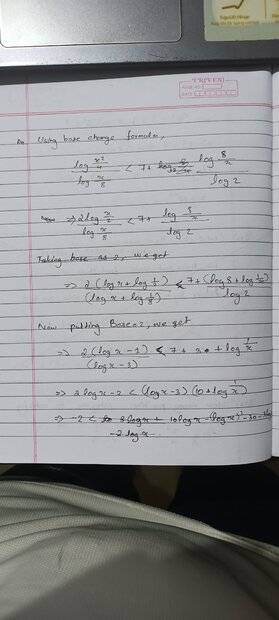 TRIVENI
DATE
Using base change formula,
log x²/4 / log x/8 < 7 + log 8/x / log 2
⇒ 2 log x/2 / log x/8 < 7 + log 8/x / log 2
Taking base as 2, we get
⇒ 2 (log x + log 1/2) / (log x + log 1/8) < 7 + (log 8 + log 1/x) / log 2
Now putting Base = 2, we get
⇒ 2 (log x - 1) / (log x - 3) < 7 + 3 + log 1/x
⇒ 2 log x - 2 < (log x - 3) (10 + log 1/x)
⇒ -2 < 10 log x - (log x)² - 30
-2 log x